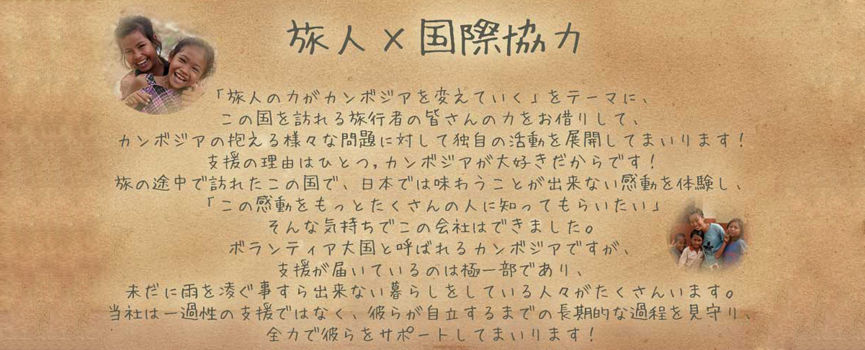 旅人×国際協力
「旅人の力がカンボジアを変えていく」をテーマに、
この国を訪れる旅行者の皆さんの力をお借りして、
カンボジアの抱える様々な問題に対して独自の活動を展開してまいります！
支援の理由はひとつ,カンボジアが大好きだからです！
旅の途中で訪れたこの国で、日本では味わうことが出来ない感動を体験し、
「この感動をもっとたくさんの人に知ってもらいたい」
そんな気持ちでこの会社はできました。
ボランティア大国と呼ばれるカンボジアですが、
支援が届いているのは極一部であり、
未だに雨を凌ぐ事すら出来ない暮らしをしている人々がたくさんいます。
当社は一過性の支援ではなく、彼らが自立するまでの長期的な過程を見守り、
全力で彼らをサポートしてまいります！